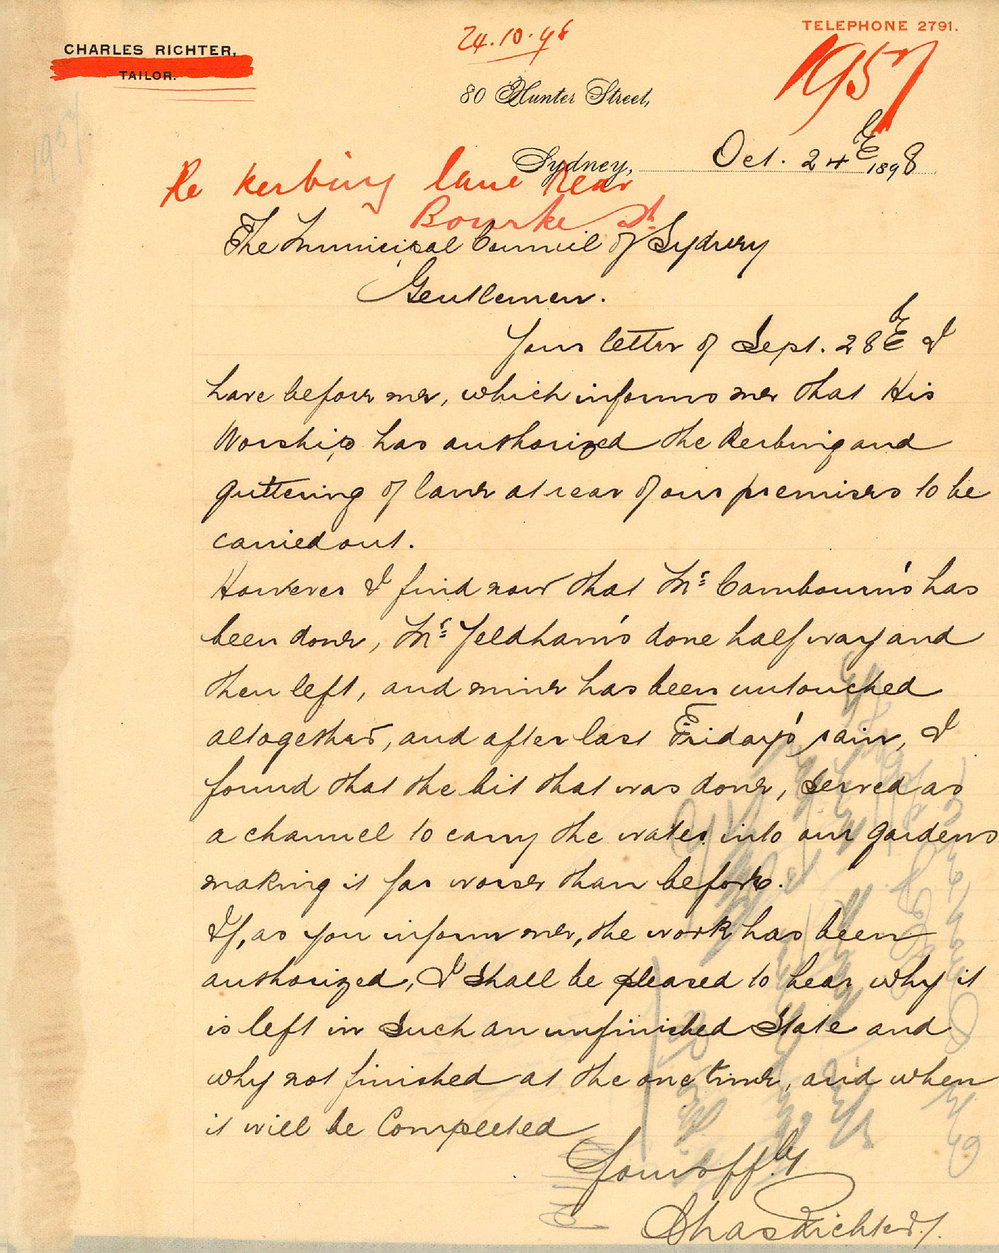 CHARLES RICHTER,
TAILOR.
24.10.98
TELEPHONE 2791.
1957
80 Hunter Street,
1957
Sydney, Oct. 24th 1898
Re Kerbing lane Rear
Bourke St
The Municipal Council of Sydney
Gentlemen.
Your letter of Sept. 28th I
have before me, which informs me that His
Worship has authorized the Kerbing and
guttering of lane at rear of our premises to be
carried out.
However I find now that Mrs Cambourn's has
been done, Mrs Yeldham's done half way and
then left, and mine has been untouched
altogether, and after last Friday's rain, I
found that the bit that was done, served as
a channel to carry the water into our gardens
making it far worse than before.
If, as you inform me, the work has been
authorized, I shall be pleased to hear why it
is left in such an unfinished state and
why not finished at the one time, and when
it will be completed
Yours ffly
Chas Richter.